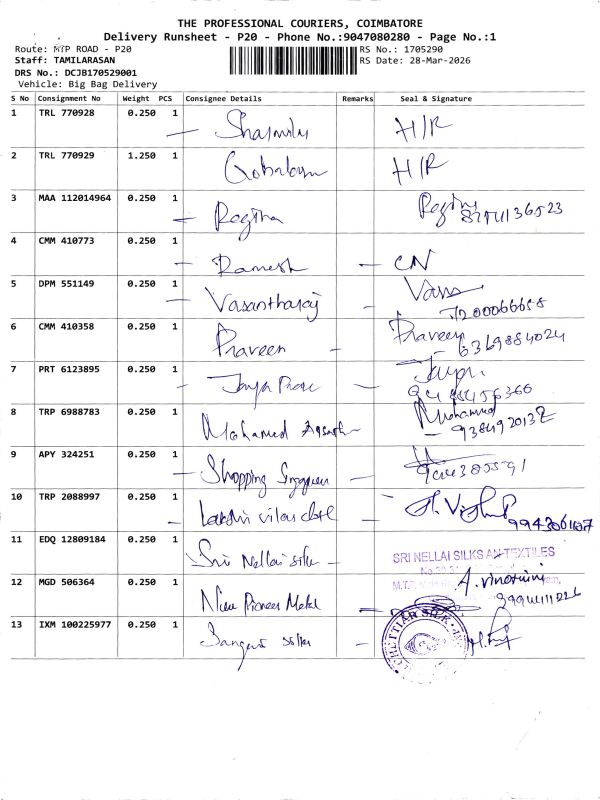 THE PROFESSIONAL COURIERS, COIMBATORE
Delivery Runsheet - P20 - Phone No.:9047080280 - Page No.:1
Route: MTP ROAD - P20 RS No.: 1705290
Staff: TAMILARASAN RS Date: 28-Mar-2026
DRS No.: DCJB170529001
Vehicle: Big Bag Delivery
S No Consignment No Weight PCS Consignee Details Remarks Seal & Signature
1 TRL 770928 0.250 1 Sharmila H/R
2 TRL 770929 1.250 1 H/R
3 MAA 112014964 0.250 1 Regina Regina
4 CMM 410773 0.250 1 Ramesh CN
5 DPM 551149 0.250 1 Vasantharaj 7200066658
6 CMM 410358 0.250 1 Praveen Praveen 6369884024
7 PRT 6123895 0.250 1
8 TRP 6988783 0.250 1 Mohamed Mohamed
9 APY 324251 0.250 1 Shopping
10 TRP 2088997 0.250 1 Lakshmi vilas
11 EDQ 12809184 0.250 1 Sri Nellai silk SRI NELLAI SILKS AN TEXTILES
12 MGD 506364 0.250 1 New Pioneer Metal
13 IXM 100225977 0.250 1